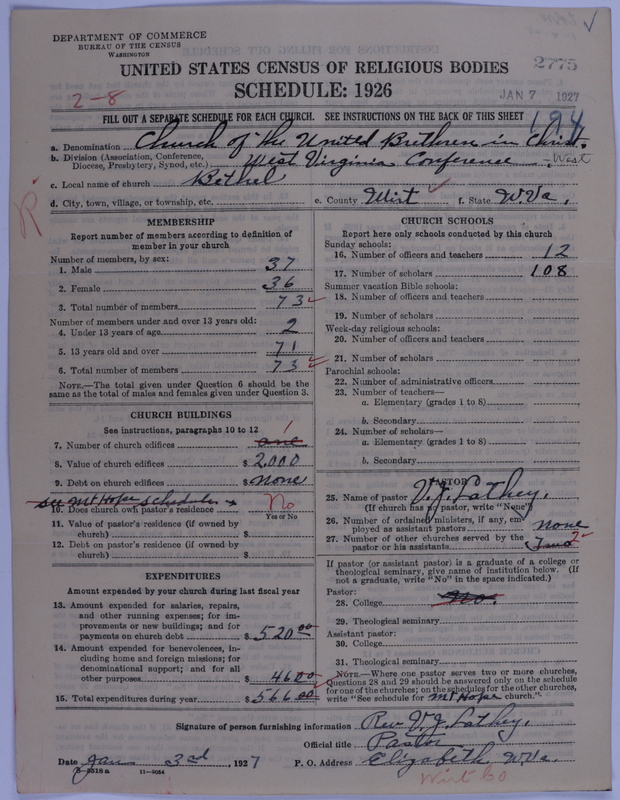 DEPARTMENT OF COMMERCE
BUREAU OF THE CENSUS
WASHINGTON
UNITED STATES CENSUS OF RELIGIOUS BODIES
2775
SCHEDULE: 1926
2-8
JAN 7 1927
FILL OUT A SEPARATE SCHEDULE FOR EACH CHURCH. SEE INSTRUCTIONS ON THE BACK OF THIS SHEET
194
a. Denomination Church of the United Brethren in Christ.
b. Division (Association, Conference, Diocese, Presbytery, Synod, etc.) West Virginia Conference - West
c. Local name of church Bethel
d. City, town, village, or township, etc. e. County Wirt f. State W.Va,
R
MEMBERSHIP
Report number of members according to definition of
member in your church
Number of members, by sex:
1. Male 37
2. Female 36
3. Total number of members 73
Number of members under and over 13 years old:
4. Under 13 years of age 2
5. 13 years old and over 71
6. Total number of members 73
NOTE.—The total given under Question 6 should be
same as the total of males and females given under Question 3.
CHURCH BUILDINGS
See instructions, paragraphs 10 to 12
7. Number of church edifices one 1
8. Value of church edifices $2,000
9. Debt on church edifices $none
see Mt Hope schedule
10. Does church own pastor's residence No
Yes or No
11. Value of pastor's residence (if owned by
church) $
12. Debt on pastor's residence (if owned by
church) $
EXPENDITURES
Amount expended by your church during last fiscal year
13. Amount expended for salaries, repairs,
and other running expenses; for im-
provements or new buildings; and for
payments on church debt $520.00
14. Amount expended for benevolences, in-
cluding home and foreign missions; for
denominational support; and for all
other purposes $46.00
15. Total expenditures during year $566.00
CHURCH SCHOOLS
Report here only schools conducted by this church
Sunday schools:
16. Number of officers and teachers 12
17. Number of scholars 108
Summer vacation Bible schools:
18. Number of officers and teachers
19. Number of scholars
Week-day religious schools:
20. Number of officers and teachers
21. Number of scholars
Parochial schools:
22. Number of administrative officers
23. Number of teachers—
a. Elementary (grades 1 to 8)
b. Secondary
24. Number of scholars—
a. Elementary (grades 1 to 8)
b. Secondary
PASTOR
25. Name of pastor V. J. Lathey,
(If church has no pastor, write "None")
26. Number of ordained ministers, if any, em-
ployed as assistant pastors none
27. Number of other churches served by the
pastor or his assistants Two 2
If pastor (or assistant pastor) is a graduate of a college or
theological seminary, give name of institution below. (If
not a graduate, write "No" in the space indicated.)
Pastor:
28. College No.
29. Theological seminary
Assistant pastor:
30. College
31. Theological seminary
NOTE.—Where one pastor serves two or more churches,
Questions 28 and 29 should be answered only on the schedule
for one of the churches; on the schedules for the other churches,
write "See schedule for Mt Hope church."
Signature of person furnishing information Rev V. J. Lathey,
Official title Pastor
Date Jan 3rd, 1927 P. O. Address Elizabeth, W.Va.
8-3518a 11-9054
Wirt Co